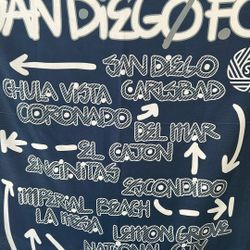 SAN DIEGO F.C
SAN DIEGO
CHULA VISTA CARLSBAD
CORONADO
DEL MAR
EL CAJON
ENCINITAS
ESCONDIDO
IMPERIAL BEACH
LA MESA
LEMON GROVE
NATIONAL